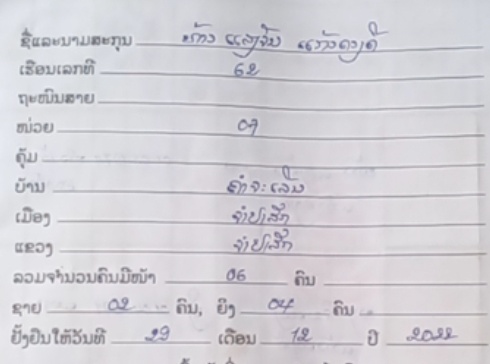 ຊື່ແລະນາມສະກຸນ ທ້າວ ແສງຈັນ
ເຮືອນເລກທີ 62
ຖະໜົນສາຍ
ໜ່ວຍ 07
ຄຸ້ມ
ບ້ານ
ເມືອງ ຈຳປາສັກ
ແຂວງ ຈຳປາສັກ
ລວມຈຳນວນຄົນມີໜ້າ 06 ຄົນ
ຊາຍ 02 ຄົນ, ຍິງ 04 ຄົນ
ຢັ້ງຢືນໃຫ້ວັນທີ 29 ເດືອນ 12 ປີ 2022